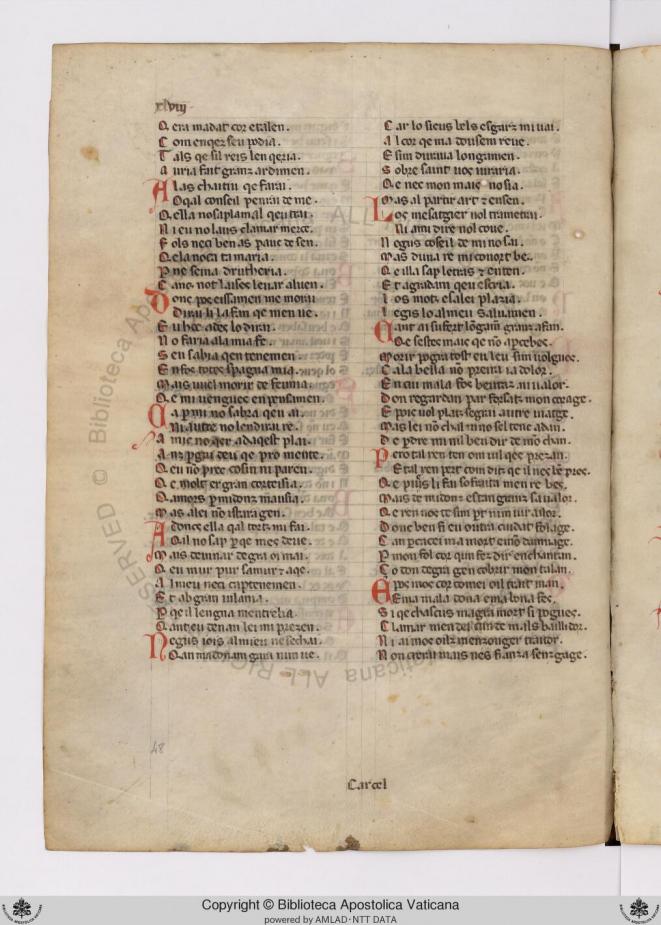 xlviij
Q era madat cor etalen.
C om enqer seu podia.
T als qe sil reis len qeria.
A uria fait granz ardimen.
A las chaitiu qe farai.
O qal conseil penrai de me.
Q ella nosap lamal qeu trai.
N i eu no laus clamar merce.
F ols neci ben as pauc de sen.
Q ela noca ta maria.
P ne sema drutheria.
C anc not laisses leuar aluen.
D onc pos eissamen me morai
D irai li lafan qe men ue.
E u hoc ades lo dirai.
N o faria ala mia fe.
S eu sabia qen tenemen.
E nfos totos spagna mia.
M ais uuel morir de feunia.
Q e mi uengues en pensamen.
I a p mi no sabra qeu ai.
N i autre no lendirai re.
A mic no qer ad aqest plai.
A nz pgai deu qe pro mente.
Q eu no pree cosin ni paren.
Q e molt er gran cortesia.
Q amors p midonz mausia.
M as alei no istara gen.
A donc ella qal tortz mi fai.
Q il no sap p qe mes deue.
M ais deuinar degra oi mai.
Q eu muir pur samur z aqe.
A l meu neci captenemen.
E t ab gran uilania.
P qe il lengna mentrelia.
Q ant eu denan lei mi prezen.
N egus iois al mieu nesechai.
Q an madonam gara nim ue.
C ar lo sieus bels esgarz mi uai.
A l cor qe ma dousem reue.
E sim duraua longamen.
S obre saint uos iuraria.
Q e nec mon maic no sia.
M as al partir art z ensen.
L os mesatgier nol trametrai.
N i ami dire nol coue.
N egus coseil de mi no sai.
M as duna re mi conort be.
Q e illa sap letras z enten.
E t agradam qeu escria.
L os motz esalei plazia.
L egis lo al meu saluamen.
T ant ai sufert longam granz afan.
Q e sestes maic qe no apcebes.
M orir pogra tost en leu sim uolgues.
C ala bella no prenra ia dolor.
E n cui mala fos beutaz ni ualor.
D on regardan par forsatz mon corage.
E pois uol platz segrai autre uiatge.
M as lei no chal m no sel tenc adan.
D e pdre mi nil ben dir de mo chan.
P ero tal ren ten om uil qes prezan.
E tal ren pert com ditz qe il nes be pres.
Q e puis li fai sofraita men re bes.
M ais de midonz estan granz sa ualor.
Q e ren nos te sim pt nim uir aillor.
D onc ben fi eu outra cuidat folage.
C an pencei ma mort eino damnage.
P mon fol cor qim fez dir enchantan.
C o don degra gen cobrir mon talan.
E pos mos cor comei oil trait man.
E ma mala dona ema bona fes.
S i qe chascus magra mort si pogues.
C lamar men dei cum de mals baillidor.
N i ai mos oilz menzonger traitor.
N on creirai mais nes fianza senz gage.
48
Carcel
RESERVED © Biblioteca Apostolica Vaticana ALL RIGHTS
Copyright © Biblioteca Apostolica Vaticana
powered by AMLAD·NTT DATA